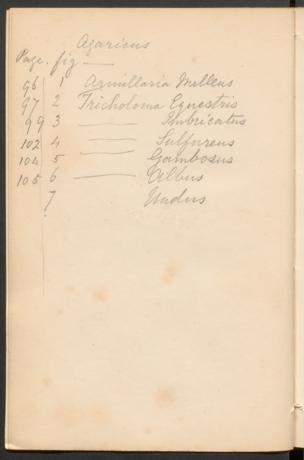 Agaricus
Page. fig
96 1 Armillaria Melleus
97 2 Tricholoma Equestris
99 3 —— Imbricatus
102 4 —— Sulfureus
104 5 —— Gambosus
105 6 —— Albus
7 Nudus